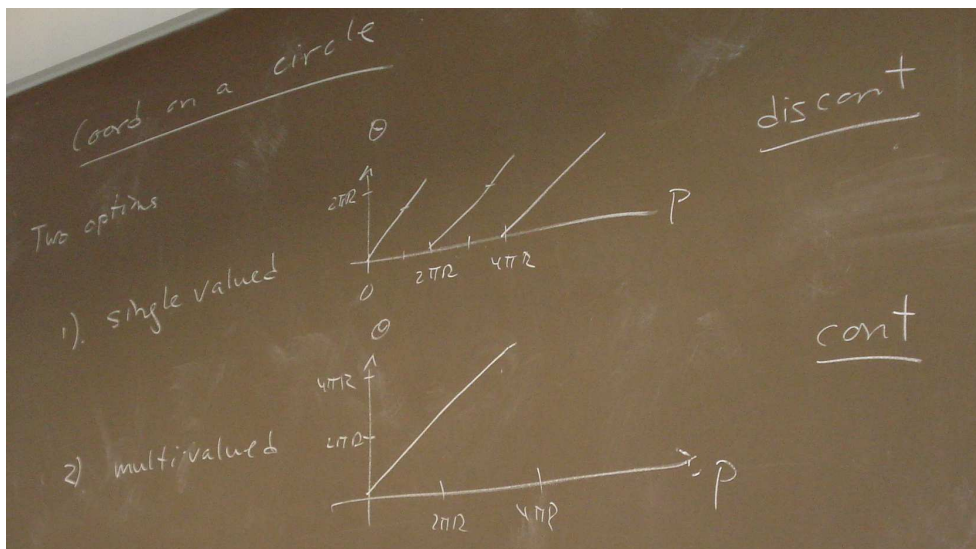 Coord on a circle
discont
Two options
1). single valued
θ
2πR
P
0
2πR
4πR
cont
2) multivalued
θ
4πR
2πR
P
2πR
4πR